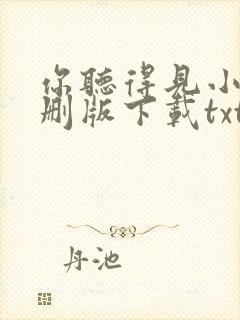 你聽得見小
刪版下載txt
丹池